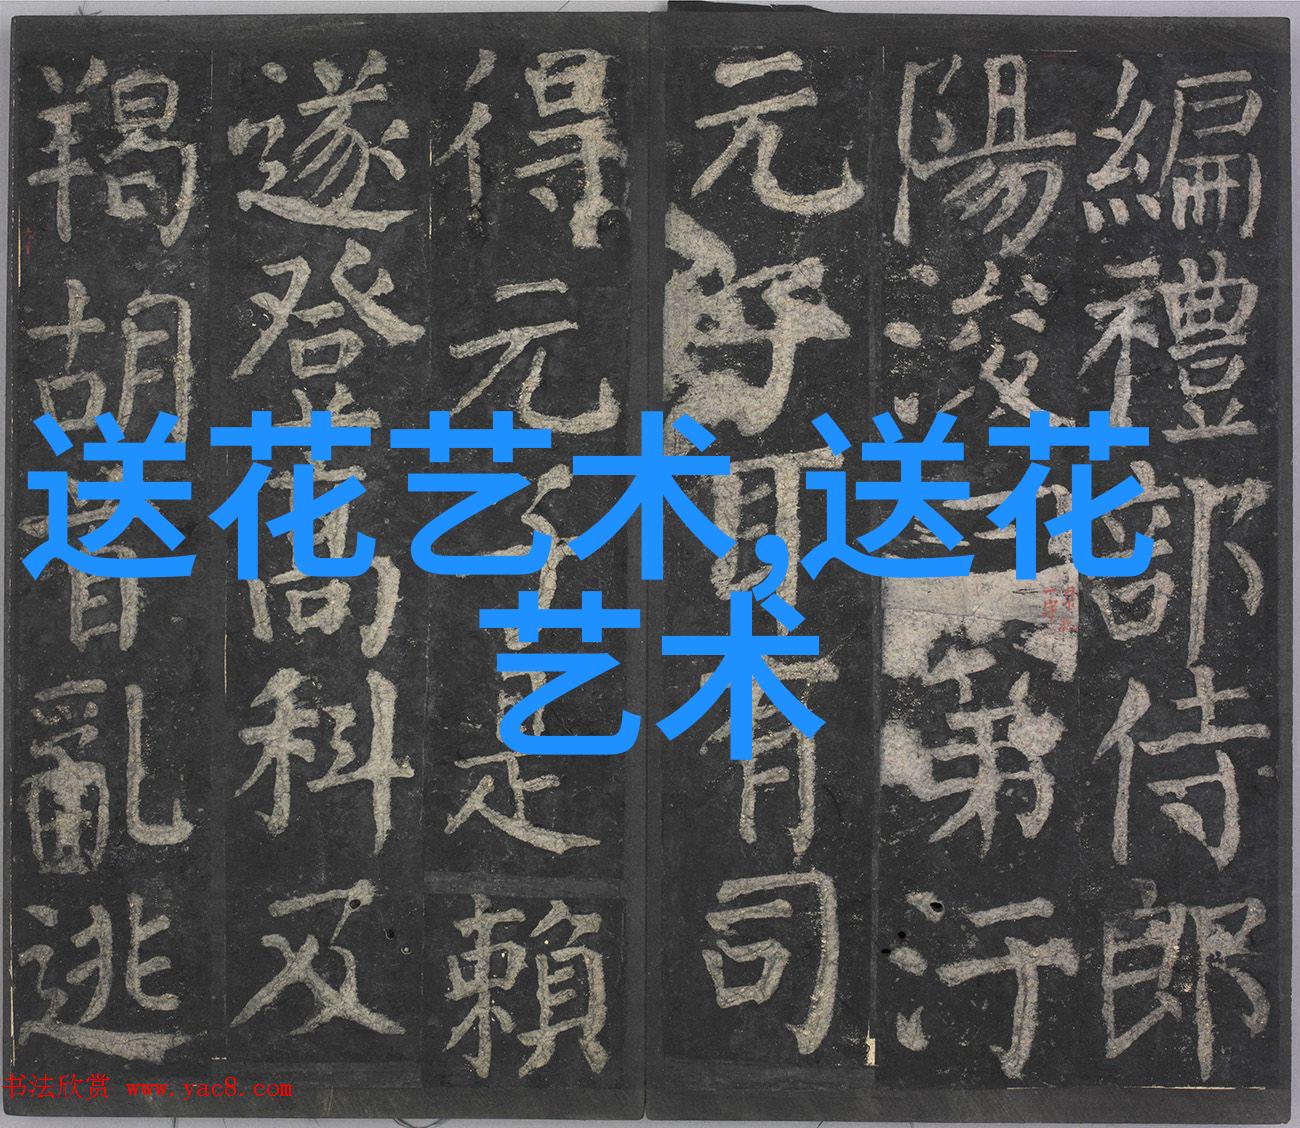 編禮部侍郎
陽浚第汙
元子耳有司
得元子是賴
遂登高科及
羯胡首亂逃
送花艺术,送花
艺术
书法欣赏 www.yac8.com